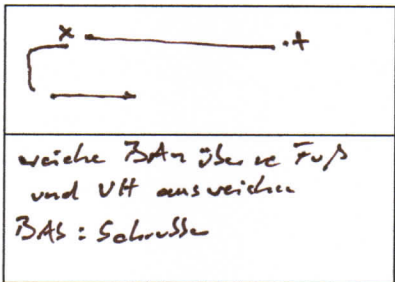 x
weiche BAn über re Fuß
und VH ausweichen
BAS: Schusse